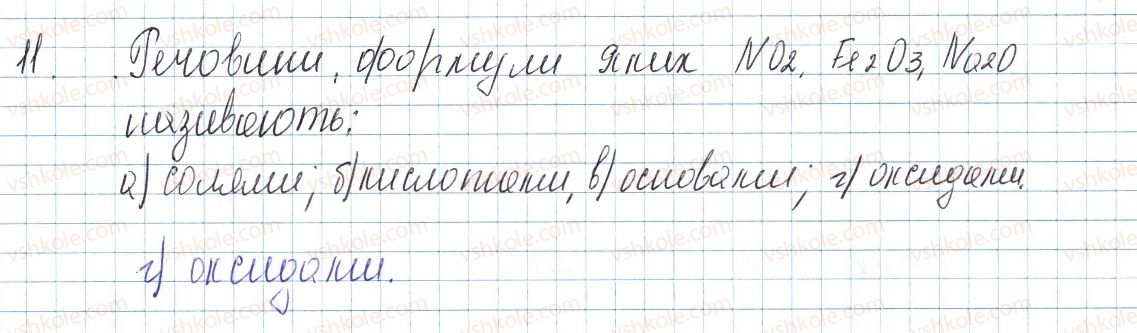 11. Речовини, формули яких NO2, Fe2O3, Na2O
називають:
а) солями; б) кислотами, в) основами; г) оксидами.
г) оксидами.